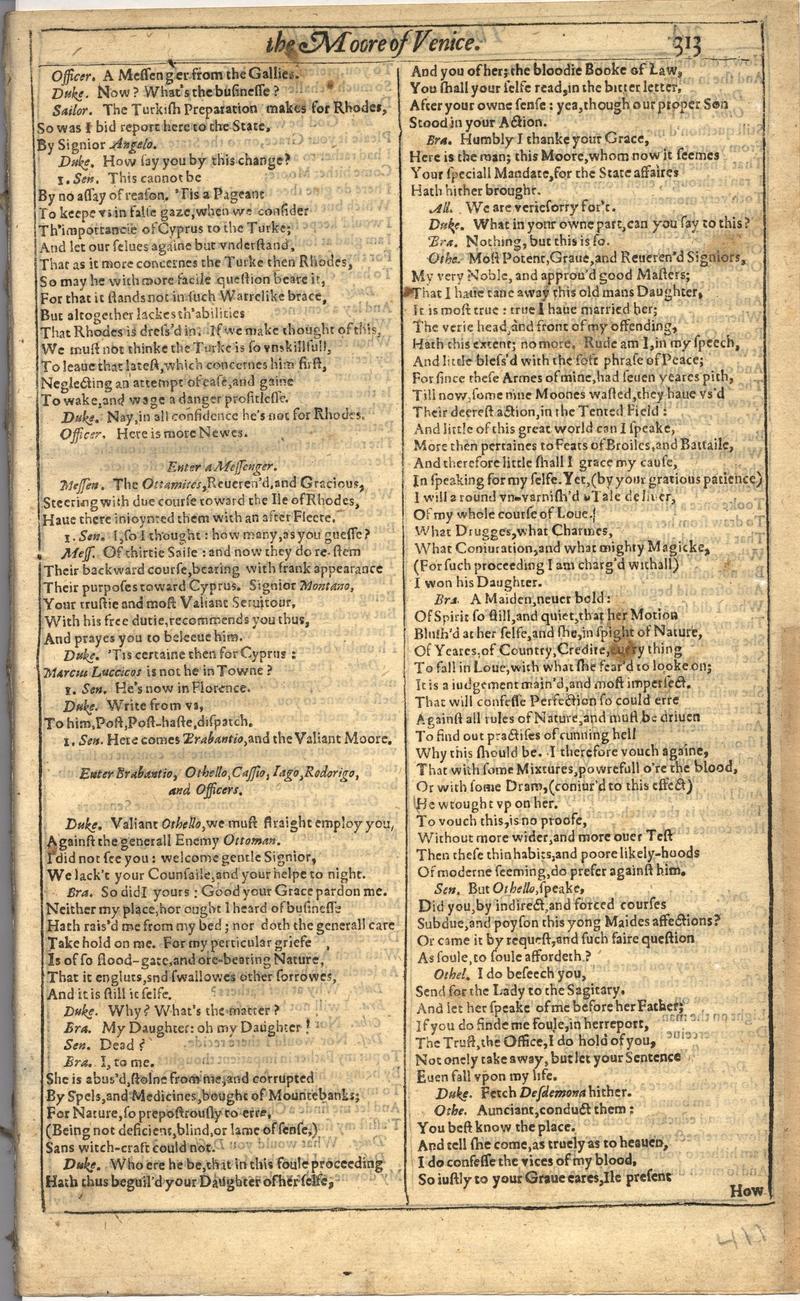 the Moore of Venice.
313
Officer. A Messenger from the Gallies.
Duke. Now? What's the businesse?
Sailor. The Turkish Preparation makes for Rhodes,
So was I bid report here to the State,
By Signior Angelo.
Duke. How say you by this change?
1. Sen. This cannot be
By no assay of reason. 'Tis a Pageant
To keepe vs in false gaze, when we consider
Th'importancie of Cyprus to the Turke;
And let our selues againe but vnderstand,
That as it more concernes the Turke then Rhodes,
So may he with more facile question beare it,
For that it stands not in such Warrelike brace,
But altogether lackes th'abilities
That Rhodes is dress'd in. If we make thought of this,
We must not thinke the Turke is so vnskillfull,
To leaue that latest, which concernes him first,
Neglecting an attempt of ease, and gaine
To wake, and wage a danger profitlesse.
Duke. Nay, in all confidence he's not for Rhodes.
Officer. Here is more Newes.
Enter a Messenger.
Messen. The Ottamites, Reueren'd, and Gracious,
Steering with due course toward the Ile of Rhodes,
Haue there inioynted them with an after Fleete.
1. Sen. I, so I thought: how many, as you guesse?
Mess. Of thirtie Saile: and now they do re-stem
Their backward course, bearing with frank appearance
Their purposes toward Cyprus. Signior Montano,
Your trustie and most Valiant Seruitour,
With his free dutie, recommends you thus,
And prayes you to beleeue him.
Duke. 'Tis certaine then for Cyprus:
Marcus Luccicos is not he in Towne?
1. Sen. He's now in Florence.
Duke. Write from vs,
To him, Post, Post-haste, dispatch.
1. Sen. Here comes Brabantio, and the Valiant Moore.
Enter Brabantio, Othello, Cassio, Iago, Rodorigo,
and Officers.
Duke. Valiant Othello, we must straight employ you,
Against the generall Enemy Ottoman.
I did not see you: welcome gentle Signior,
We lack't your Counsaile, and your helpe to night.
Bra. So did I yours: Good your Grace pardon me.
Neither my place, hor ought I heard of businesse
Hath rais'd me from my bed; nor doth the generall care
Take hold on me. For my perticular griefe ,
Is of so flood-gate, and ore-bearing Nature,
That it engluts, snd swallowes other sorrowes,
And it is still it selfe.
Duke. Why? What's the matter?
Bra. My Daughter: oh my Daughter!
Sen. Dead?
Bra. I, to me.
She is abus'd, stolne from me, and corrupted
By Spels, and Medicines, bought of Mountebanks;
For Nature, so prepostrously to erre,
(Being not deficient, blind, or lame of sense,)
Sans witch-craft could not.
Duke. Who ere he be, that in this foule proceeding
Hath thus beguil'd your Daughter of her selfe,
And you of her; the bloodie Booke of Law,
You shall your selfe read, in the bitter letter,
After your owne sense: yea, though our proper Son
Stood in your Action.
Bra. Humbly I thanke your Grace,
Here is the man; this Moore, whom now it seemes
Your speciall Mandate, for the State affaires
Hath hither brought.
All. We are verie sorry for't.
Duke. What in your owne part, can you say to this?
Bra. Nothing, but this is so.
Othe. Most Potent, Graue, and Reueren'd Signiors,
My very Noble, and approu'd good Masters;
That I haue tane away this old mans Daughter,
It is most true: true I haue married her;
The verie head, and front of my offending,
Hath this extent; no more. Rude am I, in my speech,
And little bless'd with the soft phrase of Peace;
For since these Armes of mine, had seuen yeares pith,
Till now, some nine Moones wasted, they haue vs'd
Their deerest action, in the Tented Field:
And little of this great world can I speake,
More then pertaines to Feats of Broiles, and Battaile,
And therefore little shall I grace my cause,
In speaking for my selfe. Yet, (by your gratious patience)
I will a round vn-varnish'd u Tale deliuer,
Of my whole course of Loue.
What Drugges, what Charmes,
What Coniuration, and what mighty Magicke,
(For such proceeding I am charg'd withall)
I won his Daughter.
Bra. A Maiden, neuer bold:
Of Spirit so still, and quiet, that her Motion
Blush'd at her selfe, and she, in spight of Nature,
Of Yeares, of Country, Credite, euery thing
To fall in Loue, with what she fear'd to looke on;
It is a iudgement main'd, and most imperfect.
That will confesse Perfection so could erre
Against all rules of Nature, and must be driuen
To find out practises of cunning hell
Why this should be. I therefore vouch againe,
That with some Mixtures, powrefull o're the blood,
Or with some Dram, (coniur'd to this effect)
He wrought vp on her.
To vouch this, is no proofe,
Without more wider, and more ouer Test
Then these thin habits, and poore likely-hoods
Of moderne seeming, do prefer against him.
Sen. But Othello, speake,
Did you, by indirect, and forced courses
Subdue, and poyson this yong Maides affections?
Or came it by request, and such faire question
As soule, to soule affordeth?
Othel. I do beseech you,
Send for the Lady to the Sagitary.
And let her speake of me before her Father;
If you do finde me foule, in her report,
The Trust, the Office, I do hold of you,
Not onely take away, but let your Sentence
Euen fall vpon my life.
Duke. Fetch Desdemona hither.
Othe. Aunciant, conduct them:
You best know the place.
And tell she come, as truely as to heauen,
I do confesse the vices of my blood,
So iustly to your Graue eares, Ile present
How